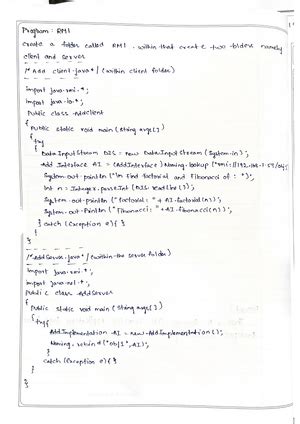 Program : RMI
Create a folder called RMI. within that create two folders namely
client and server
/* Add client.java */ (within client folder)
import java.rmi.*;
import java.io.*;
Public class Addclient
{
Public static void main (String args[])
{ try
{
DataInputStream DIS = new DataInputStream (System.in);
Add Interface AI = (AddInterface) Naming.lookup ("rmi://192.168.
System.out.println ("In find factorial and Fibonacci of : ");
Int n = Integer.parseInt (DIS.readLine());
System.out.println ("factorial: " + AI.factorial(n));
System.out.println ("Fibonacci: " + AI.fibonacci(n));
} catch (Exception e){ }
}
}
/* AddServer.java */ (within the server folder)
Import java.rmi.*;
Import java.net.*;
Public class AddServer
{
Public static void main (String args[])
{
try{
AddImplementation AI = new AddImplementation();
Naming.rebind ("obj1", AI);
}
catch (Exception e){ }
}
}